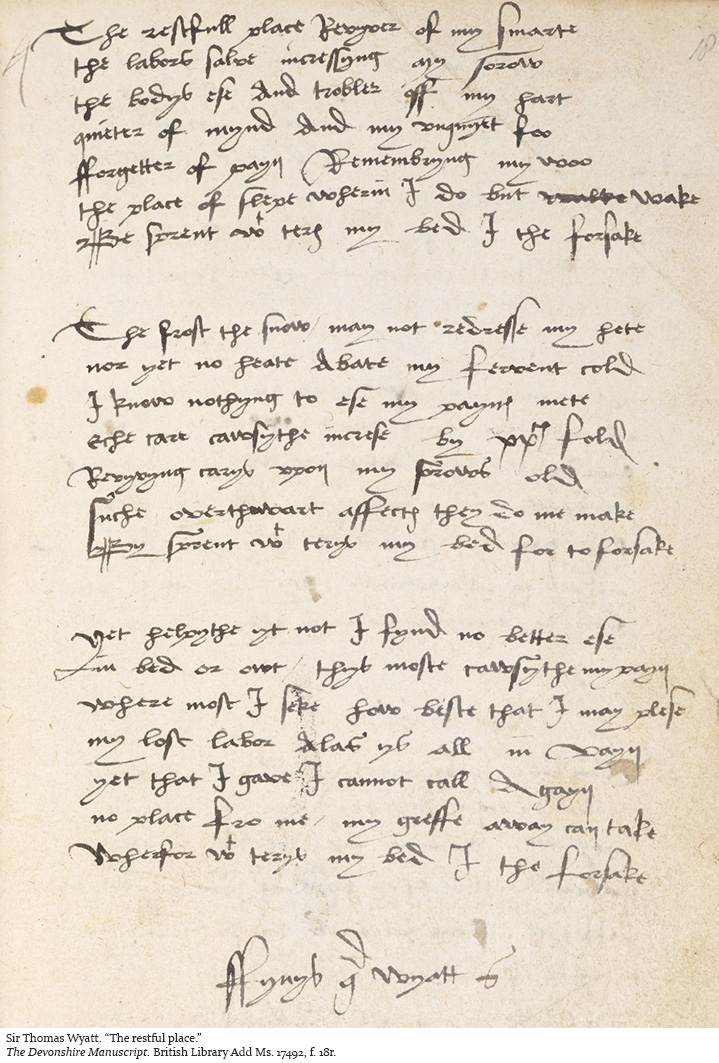 18
The restfull place Revyver of my smarte
the labors salve incressyng my sorow
the bodys ese And trobler off my hart
quieter of mynd And my unquyet foo
fforgetter of payn Remembryng my woo
the place of slepe wherin I do but wake
Be sprent wt ters my bed I the forsake
The frost the snow / may not redresse my hete
nor yet no heate Abate my fervent cold
I know nothyng to ese my paynes mete
Eche care cawsythe increse by xxti fold
Revyvyng carys upon my sorows old
suche overthwart affectes they do me make
By sprent wt terys my bed for to forsake
Yet helpythe yt not I fynd no better ese
In bed or owt / thys moste cawsythe my payn
where most I seke how beste that I may plese
my lost labor Alas ys all in vayn
yet that I gave I cannot call Agayn
no place fro me / my greffe away can take
Wherfor wt terys my bed I the forsake
ffynys qd Wyatt
Sir Thomas Wyatt. “The restful place.”
The Devonshire Manuscript. British Library Add Ms. 17492, f. 18r.